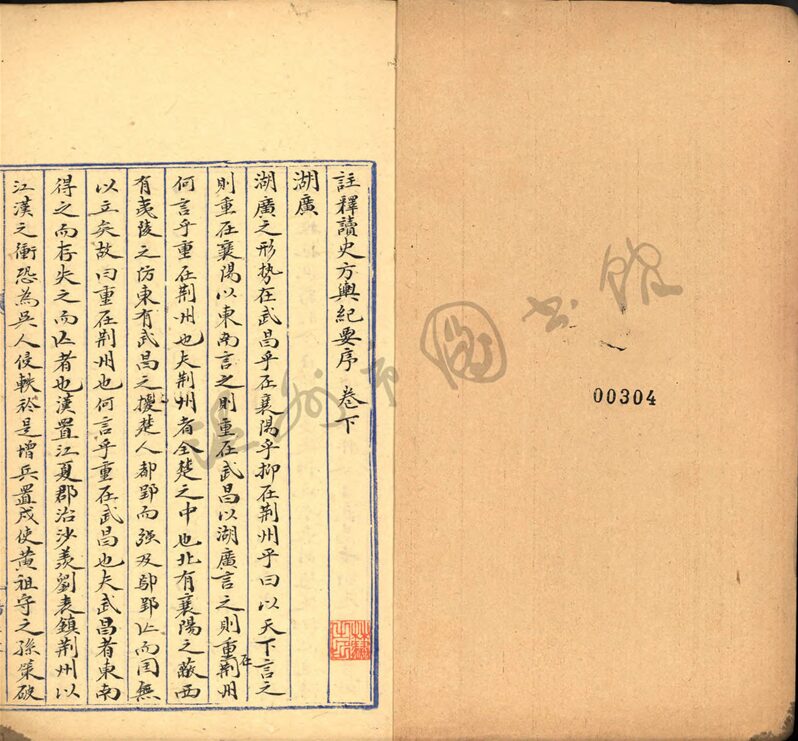 註釋讀史方輿紀要序 卷下
湖廣
湖廣之形勢在武昌乎在襄陽乎抑在荆州乎曰以天下言之
則重在襄陽以東南言之則重在武昌以湖廣言之則重在荆州
何言乎重在荆州也夫荆州者全楚之中也北有襄陽之蔽西
有夷陵之防東有武昌之援楚人都郢而强及鄢郢亡而國無
以立矣故曰重在荆州也何言乎重在武昌也夫武昌者東南
得之而存失之而亡者也漢置江夏郡治沙羨劉表鎮荆州以
江漢之衝恐為吳人侵軼於是增兵置戍使黃祖守之孫策破
溫州市圖書館
00304